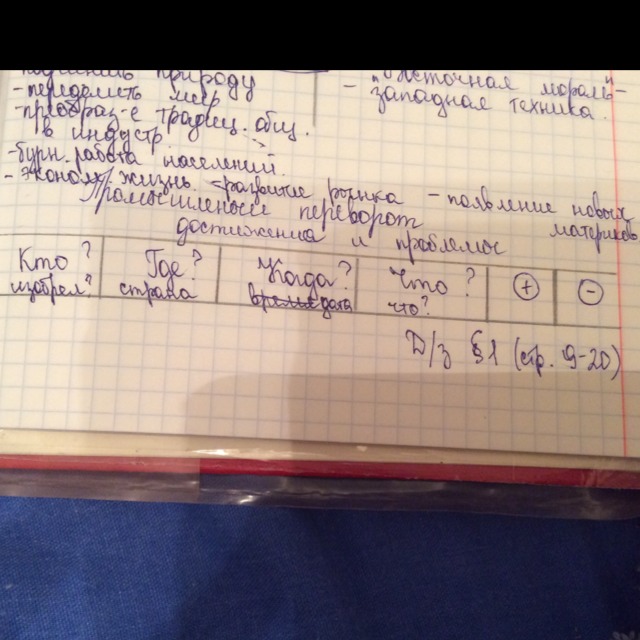 природу
- переделить мир
- преобраз-е традиц. общ.
в индустр.
- бурн. работа населений.
- эконом/жизнь - развитие рынка - появление новых
материков
- "Жёсточная мораль"
- западная техника.
Промышленный переворот
достижения и проблемы
Кто ? Где ? Когда ? Что ? + -
изобрел? страна дата что?
Д/з §1 (стр. 9-20)